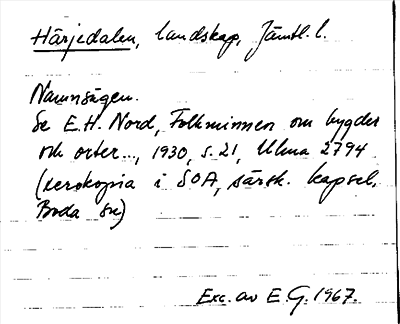 Härjedalen, landskap, Jämtl. l.
Namnsägen.
Se E.H. Nord, Folkminnen om bygder
och orter..., 1930, s. 21, Ulma 2794
(xerokopia i SOA, särsk. kapsel,
Boda sn)
Exc. av E.G. 1967.